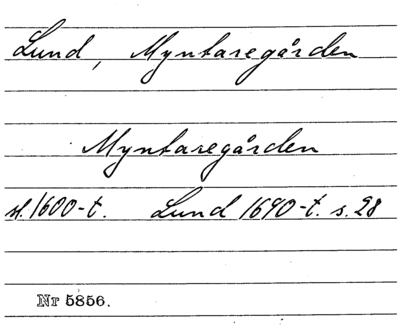 Lund, Myntaregården
Myntaregården
sl. 1600-t. Lund 1690-t. s. 28
Nr 5856.